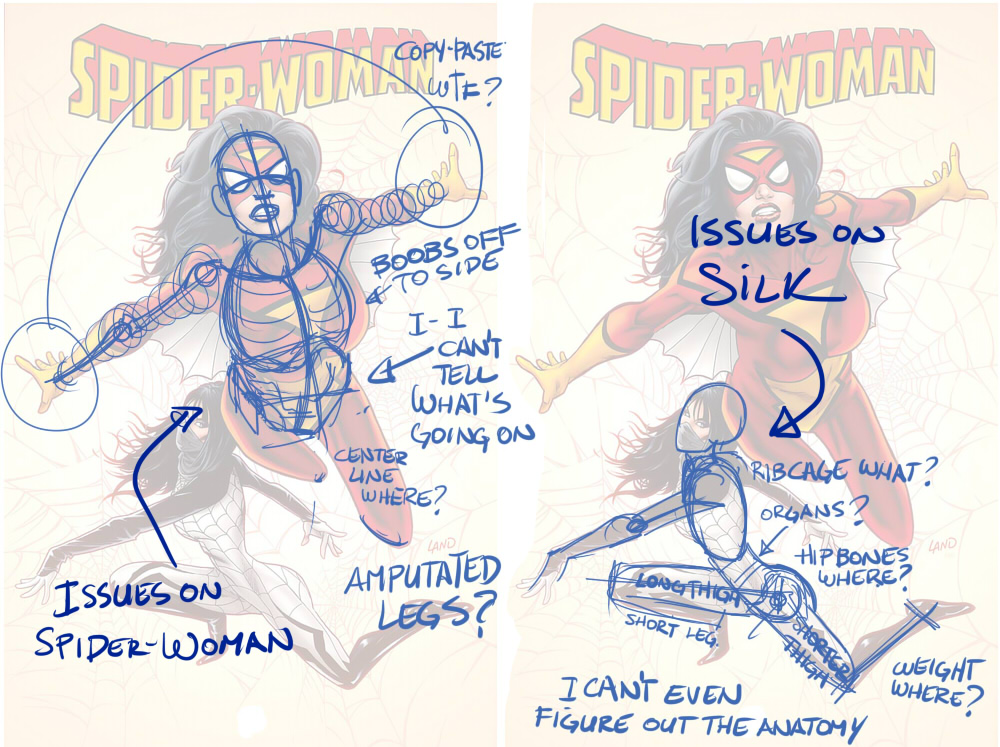 SPIDER-WOMAN
COPY-PASTE
CUTE?
BOOBS OFF
TO SIDE
I-I
CAN'T
TELL
WHAT'S
GOING ON
CENTER
LINE
WHERE?
LAND
AMPUTATED
LEGS?
ISSUES ON
SPIDER-WOMAN
SPIDER-WOMAN
ISSUES ON
SILK
RIBCAGE WHAT?
ORGANS?
HIPBONES
WHERE?
LAND
LONG THIGH
SHORT LEG.
SHORTER
THIGH
WEIGHT
WHERE?
I CAN'T EVEN
FIGURE OUT THE ANATOMY